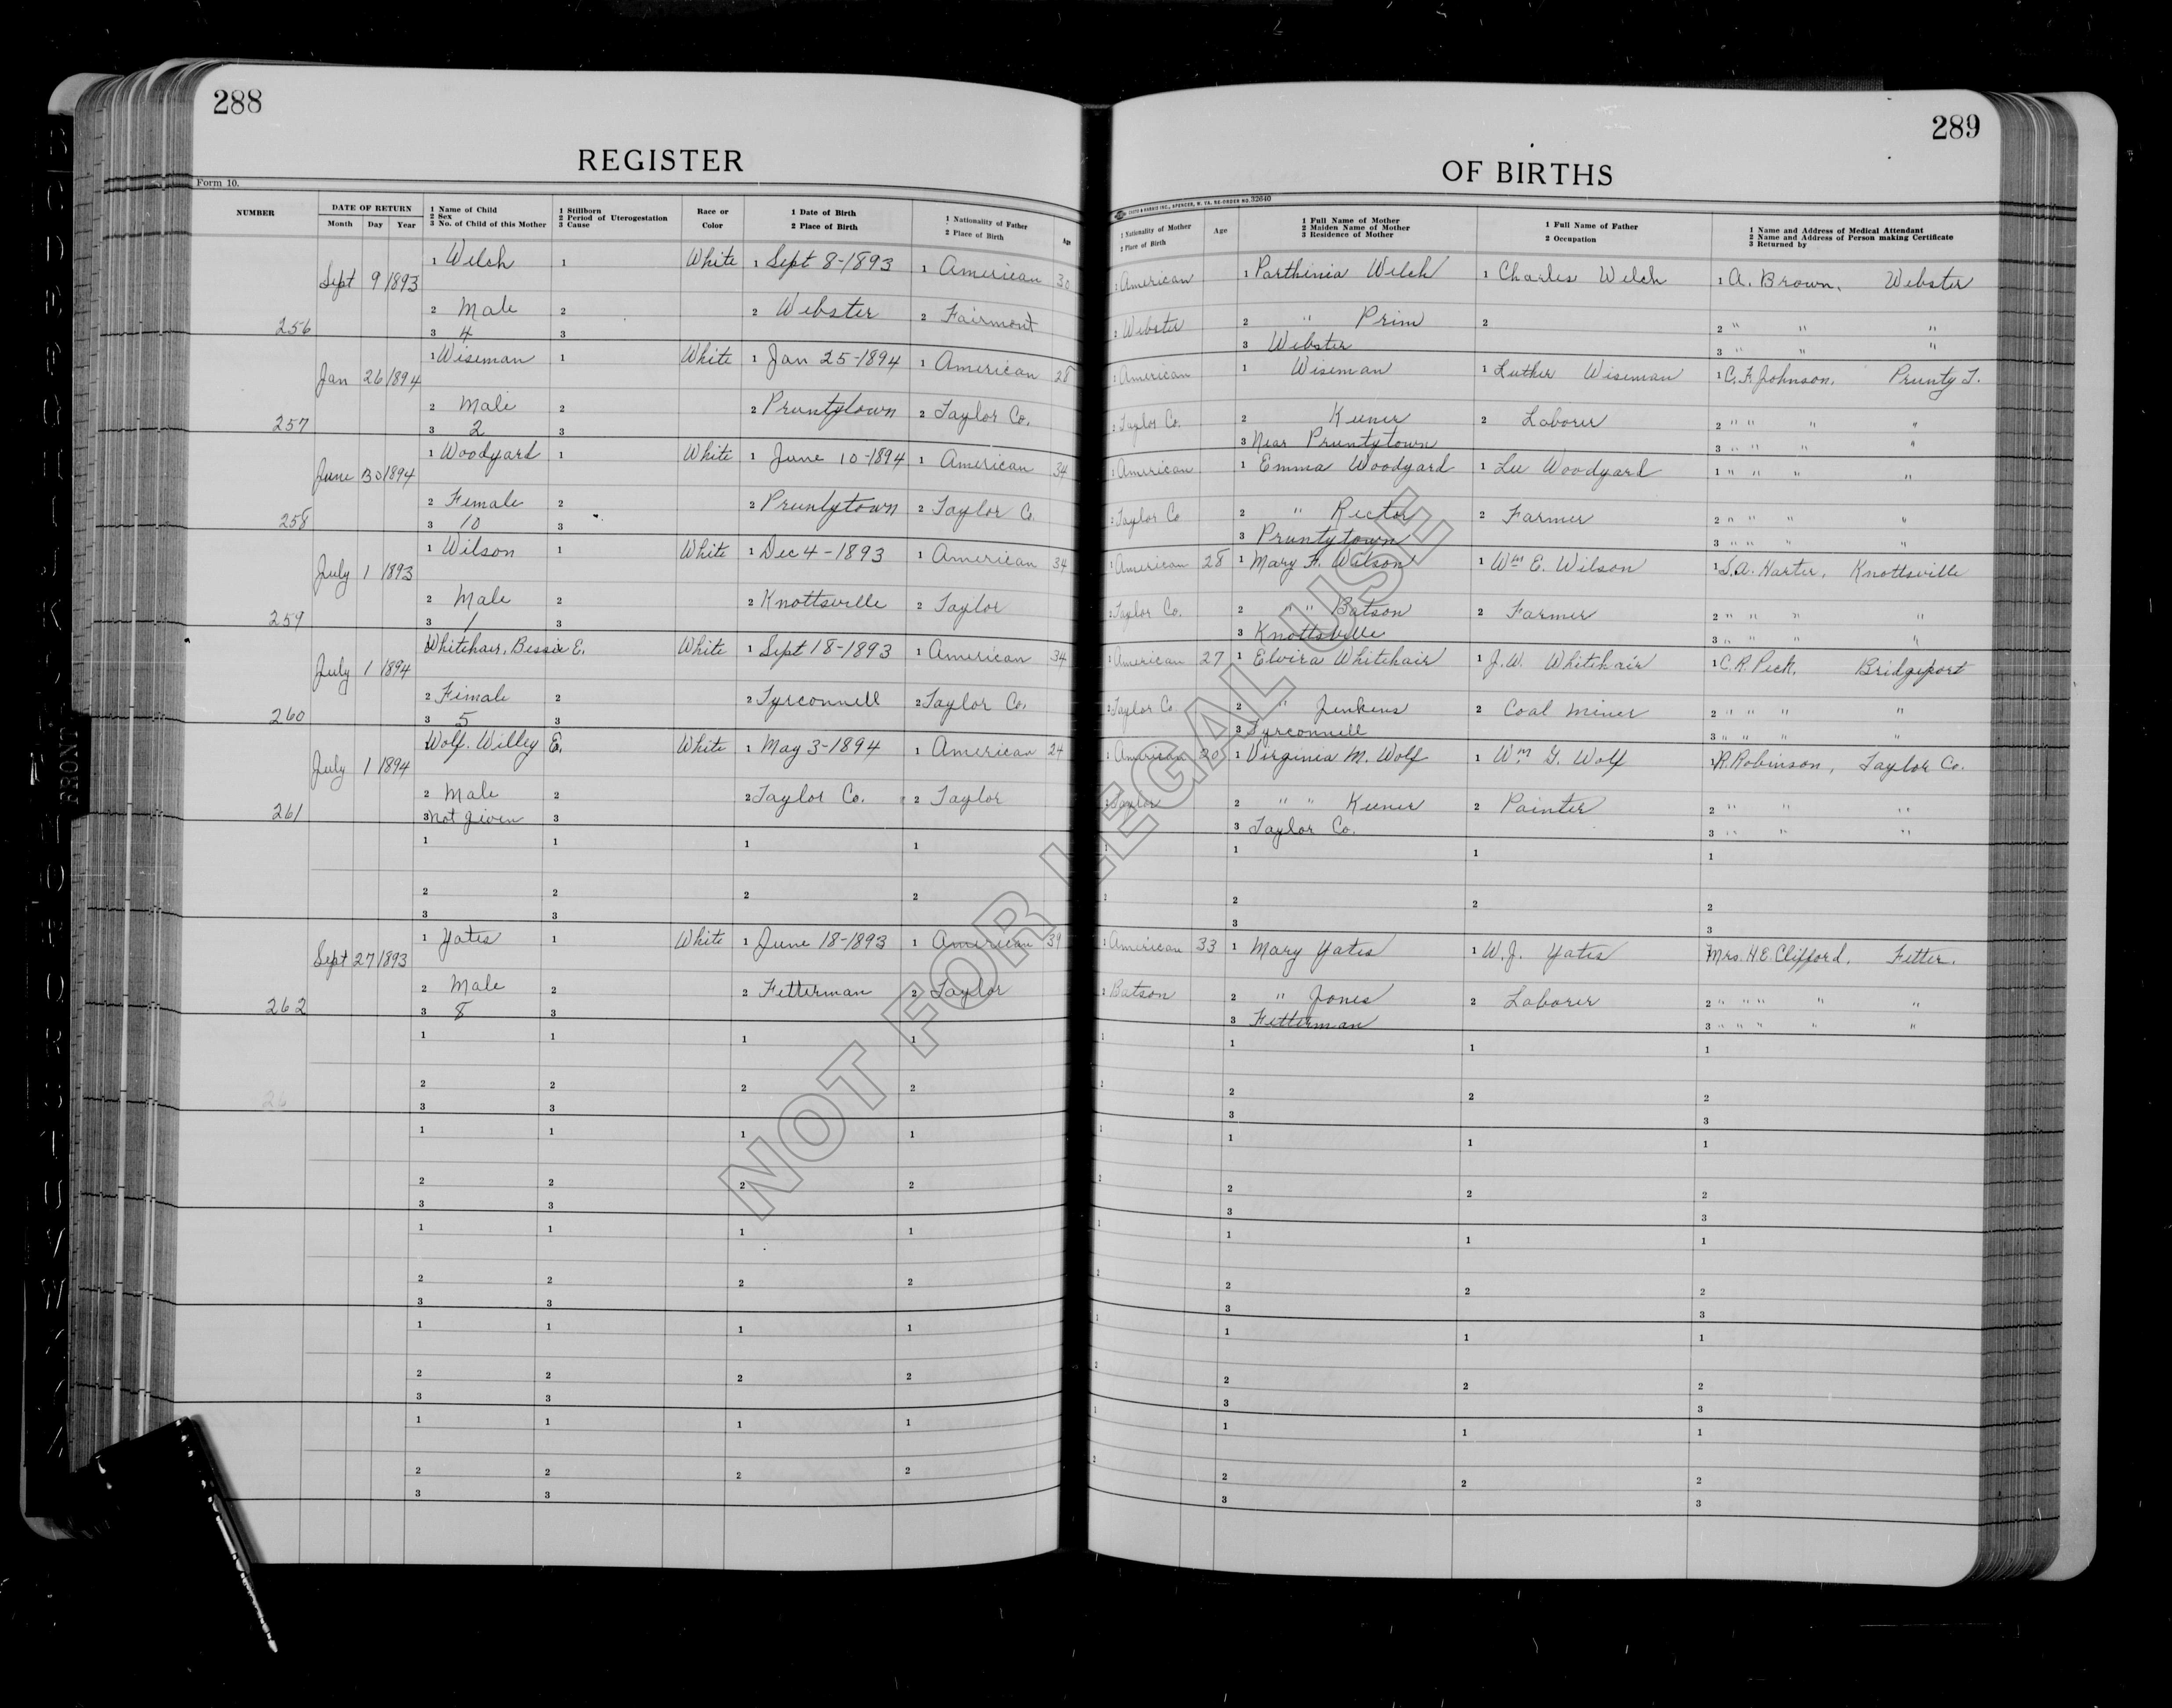 288
289
REGISTER
OF BIRTHS
Form 10.
NUMBER
DATE OF RETURN
Month Day Year
1 Name of Child
2 Sex
3 No. of Child of this Mother
1 Stillborn
2 Period of Uterogestation
3 Cause
Race or
Color
1 Date of Birth
2 Place of Birth
1 Nationality of Father
2 Place of Birth
Age
1 Nationality of Mother
2 Place of Birth
Age
1 Full Name of Mother
2 Maiden Name of Mother
3 Residence of Mother
1 Full Name of Father
2 Occupation
1 Name and Address of Medical Attendant
2 Name and Address of Person making Certificate
3 Returned by
Sept 9 1893 1 Welch 1 White 1 Sept 8-1893 1 American 30 1 American 1 Parthinia Welch 1 Charles Welch 1 A. Brown, Webster
2 Male 2 2 Webster 2 Fairmont 2 Webster 2 " Prim 2 2 " " "
256 3 4 3 3 Webster 3 " " "
Jan 26 1894 1 Wiseman 1 White 1 Jan 25-1894 1 American 28 1 American 1 Wiseman 1 Luther Wiseman 1 C.F. Johnson, Prunty T.
2 Male 2 2 Pruntytown 2 Taylor Co. 2 Taylor Co. 2 Keener 2 Laborer 2 " " " "
257 3 2 3 3 Near Pruntytown 3 " " " "
June 30 1894 1 Woodyard 1 White 1 June 10-1894 1 American 34 1 American 1 Emma Woodyard 1 Lee Woodyard 1 " " " "
2 Female 2 2 Pruntytown 2 Taylor Co. 2 Taylor Co 2 " Rector 2 Farmer 2 " " " "
258 3 10 3 3 Pruntytown 3 " " " "
July 1 1893 1 Wilson 1 White 1 Dec 4-1893 1 American 34 1 American 28 1 Mary F. Watson 1 Wm E. Wilson 1 S.A. Harter, Knottsville
2 Male 2 2 Knottsville 2 Taylor 2 Taylor Co. 2 " " Batson 2 Farmer 2 " " " "
259 3 1 3 3 Knottsville 3 " " " "
July 1 1894 Whitehair, Bessie E. White 1 Sept 18-1893 1 American 34 1 American 27 1 Elvira Whitehair 1 J.W. Whitehair 1 C.R. Peck, Bridgeport
2 Female 2 2 Tyrconnell 2 Taylor Co. 2 Taylor Co 2 " Jenkens 2 Coal Miner 2 " " " "
260 3 5 3 3 Tyrconnell 3 " " " "
July 1 1894 Wolf. Willey E. White 1 May 3-1894 1 American 24 1 American 20 1 Virginia M. Wolf 1 Wm G. Wolf 1 R. Robinson, Taylor Co.
2 Male 2 2 Taylor Co. 2 Taylor 2 Taylor 2 " " Keener 2 Painter 2 " " "
261 3 Not given 3 3 Taylor Co. 3 " " "
1 1 1 1 1 1 1 1
2 2 2 2 2 2 2 2
3 3 3 3
Sept 27 1893 1 Yates 1 White 1 June 18-1893 1 American 39 1 American 33 1 Mary Yates 1 W.J. Yates 1 Mrs. H.E. Clifford, Fetter.
2 Male 2 2 Fetterman 2 Taylor 2 Batson 2 " Jones 2 Laborer 2 " " " " "
262 3 8 3 3 Fetterman 3 " " " " "
1 1 1 1 1 1 1 1
2 2 2 2 2 2 2 2
26 3 3 3 3
1 1 1 1 1 1 1 1
2 2 2 2 2 2 2 2
3 3 3 3
1 1 1 1 1 1 1 1
2 2 2 2 2 2 2 2
3 3 3 3
1 1 1 1 1 1 1 1
2 2 2 2 2 2 2 2
3 3 3 3
1 1 1 1 1 1 1 1
2 2 2 2 2 2 2 2
3 3 3 3
NOT FOR LEGAL USE
FRONT